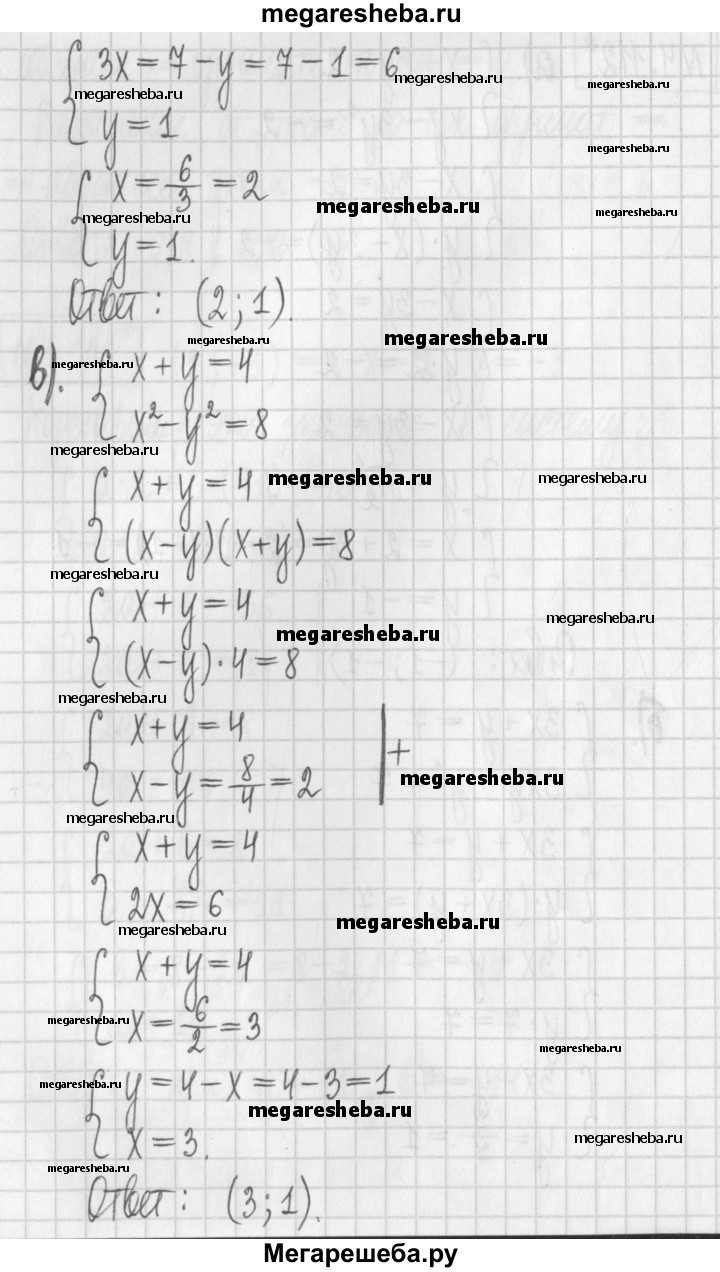 megaresheba.ru
3x = 7 - y = 7 - 1 = 6
megaresheba.ru
megaresheba.ru
megaresheba.ru
y = 1
megaresheba.ru
x = 6/3 = 2
megaresheba.ru
megaresheba.ru
megaresheba.ru
y = 1.
Ответ: (2; 1).
megaresheba.ru
megaresheba.ru
в). x + y = 4
megaresheba.ru
x² - y² = 8
megaresheba.ru
x + y = 4
megaresheba.ru
megaresheba.ru
(x - y)(x + y) = 8
megaresheba.ru
x + y = 4
megaresheba.ru
megaresheba.ru
(x - y) · 4 = 8
megaresheba.ru
x + y = 4
+
x - y = 8/4 = 2
megaresheba.ru
megaresheba.ru
x + y = 4
2x = 6
megaresheba.ru
megaresheba.ru
x + y = 4
x = 6/2 = 3
megaresheba.ru
megaresheba.ru
y = 4 - x = 4 - 3 = 1
megaresheba.ru
megaresheba.ru
x = 3.
megaresheba.ru
megaresheba.ru
Ответ: (3; 1).
Мегарешеба.ру